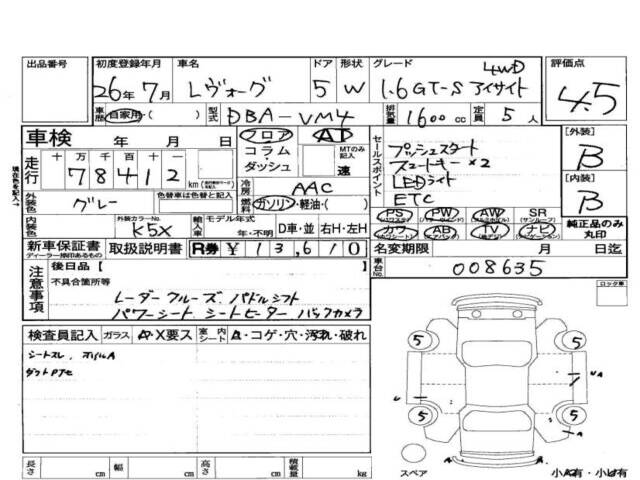 出品番号
初度登録年月
26年 7月
車名
レヴォーグ
ドア
5
形状
W
グレード
4WD
1.6GT-S アイサイト
評価点
4.5
車歴 自家用・( )
型式 DBA-VM4
排気量 1600 cc
定員 5 人
車検 年 月 日
フロア
コラム
ダッシュ
AT
MTのみ記入
速
走行
十 万 千 百 十 一
78412
km(マイル)
冷房 AAC
燃料 ガソリン・軽油・( )
セールスポイント
プッシュスタート
スマートキー×2
LEDライト
ETC
[外装]
B
[内装]
B
外装色 グレー
色替車は色替と記入
PS PW AW SR
(サンルーフ)
カワ AB TV ナビ
純正品のみ丸印
内装色
外装カラーNo.
K5X
輸入車
モデル年式
年・不明
D車・並
右H・左H
新車保証書
ディーラー捺印あるもの
取扱説明書
R券 ¥13,610
名変期限 月 日迄
車台No.
008635
注意事項
後日品【 】
不具合箇所等
レーダークルーズ パドルシフト
パワーシート シートヒーター バックカメラ
ロック車
検査員記入
ガラス
A・X要ス
室内
A・コゲ・穴・汚れ・破れ
シートスレ
5
5
5
5
A
A
スペア
小A有・小U有
長さ cm
幅 cm
高さ cm
積載量 kg
現在色を記入→